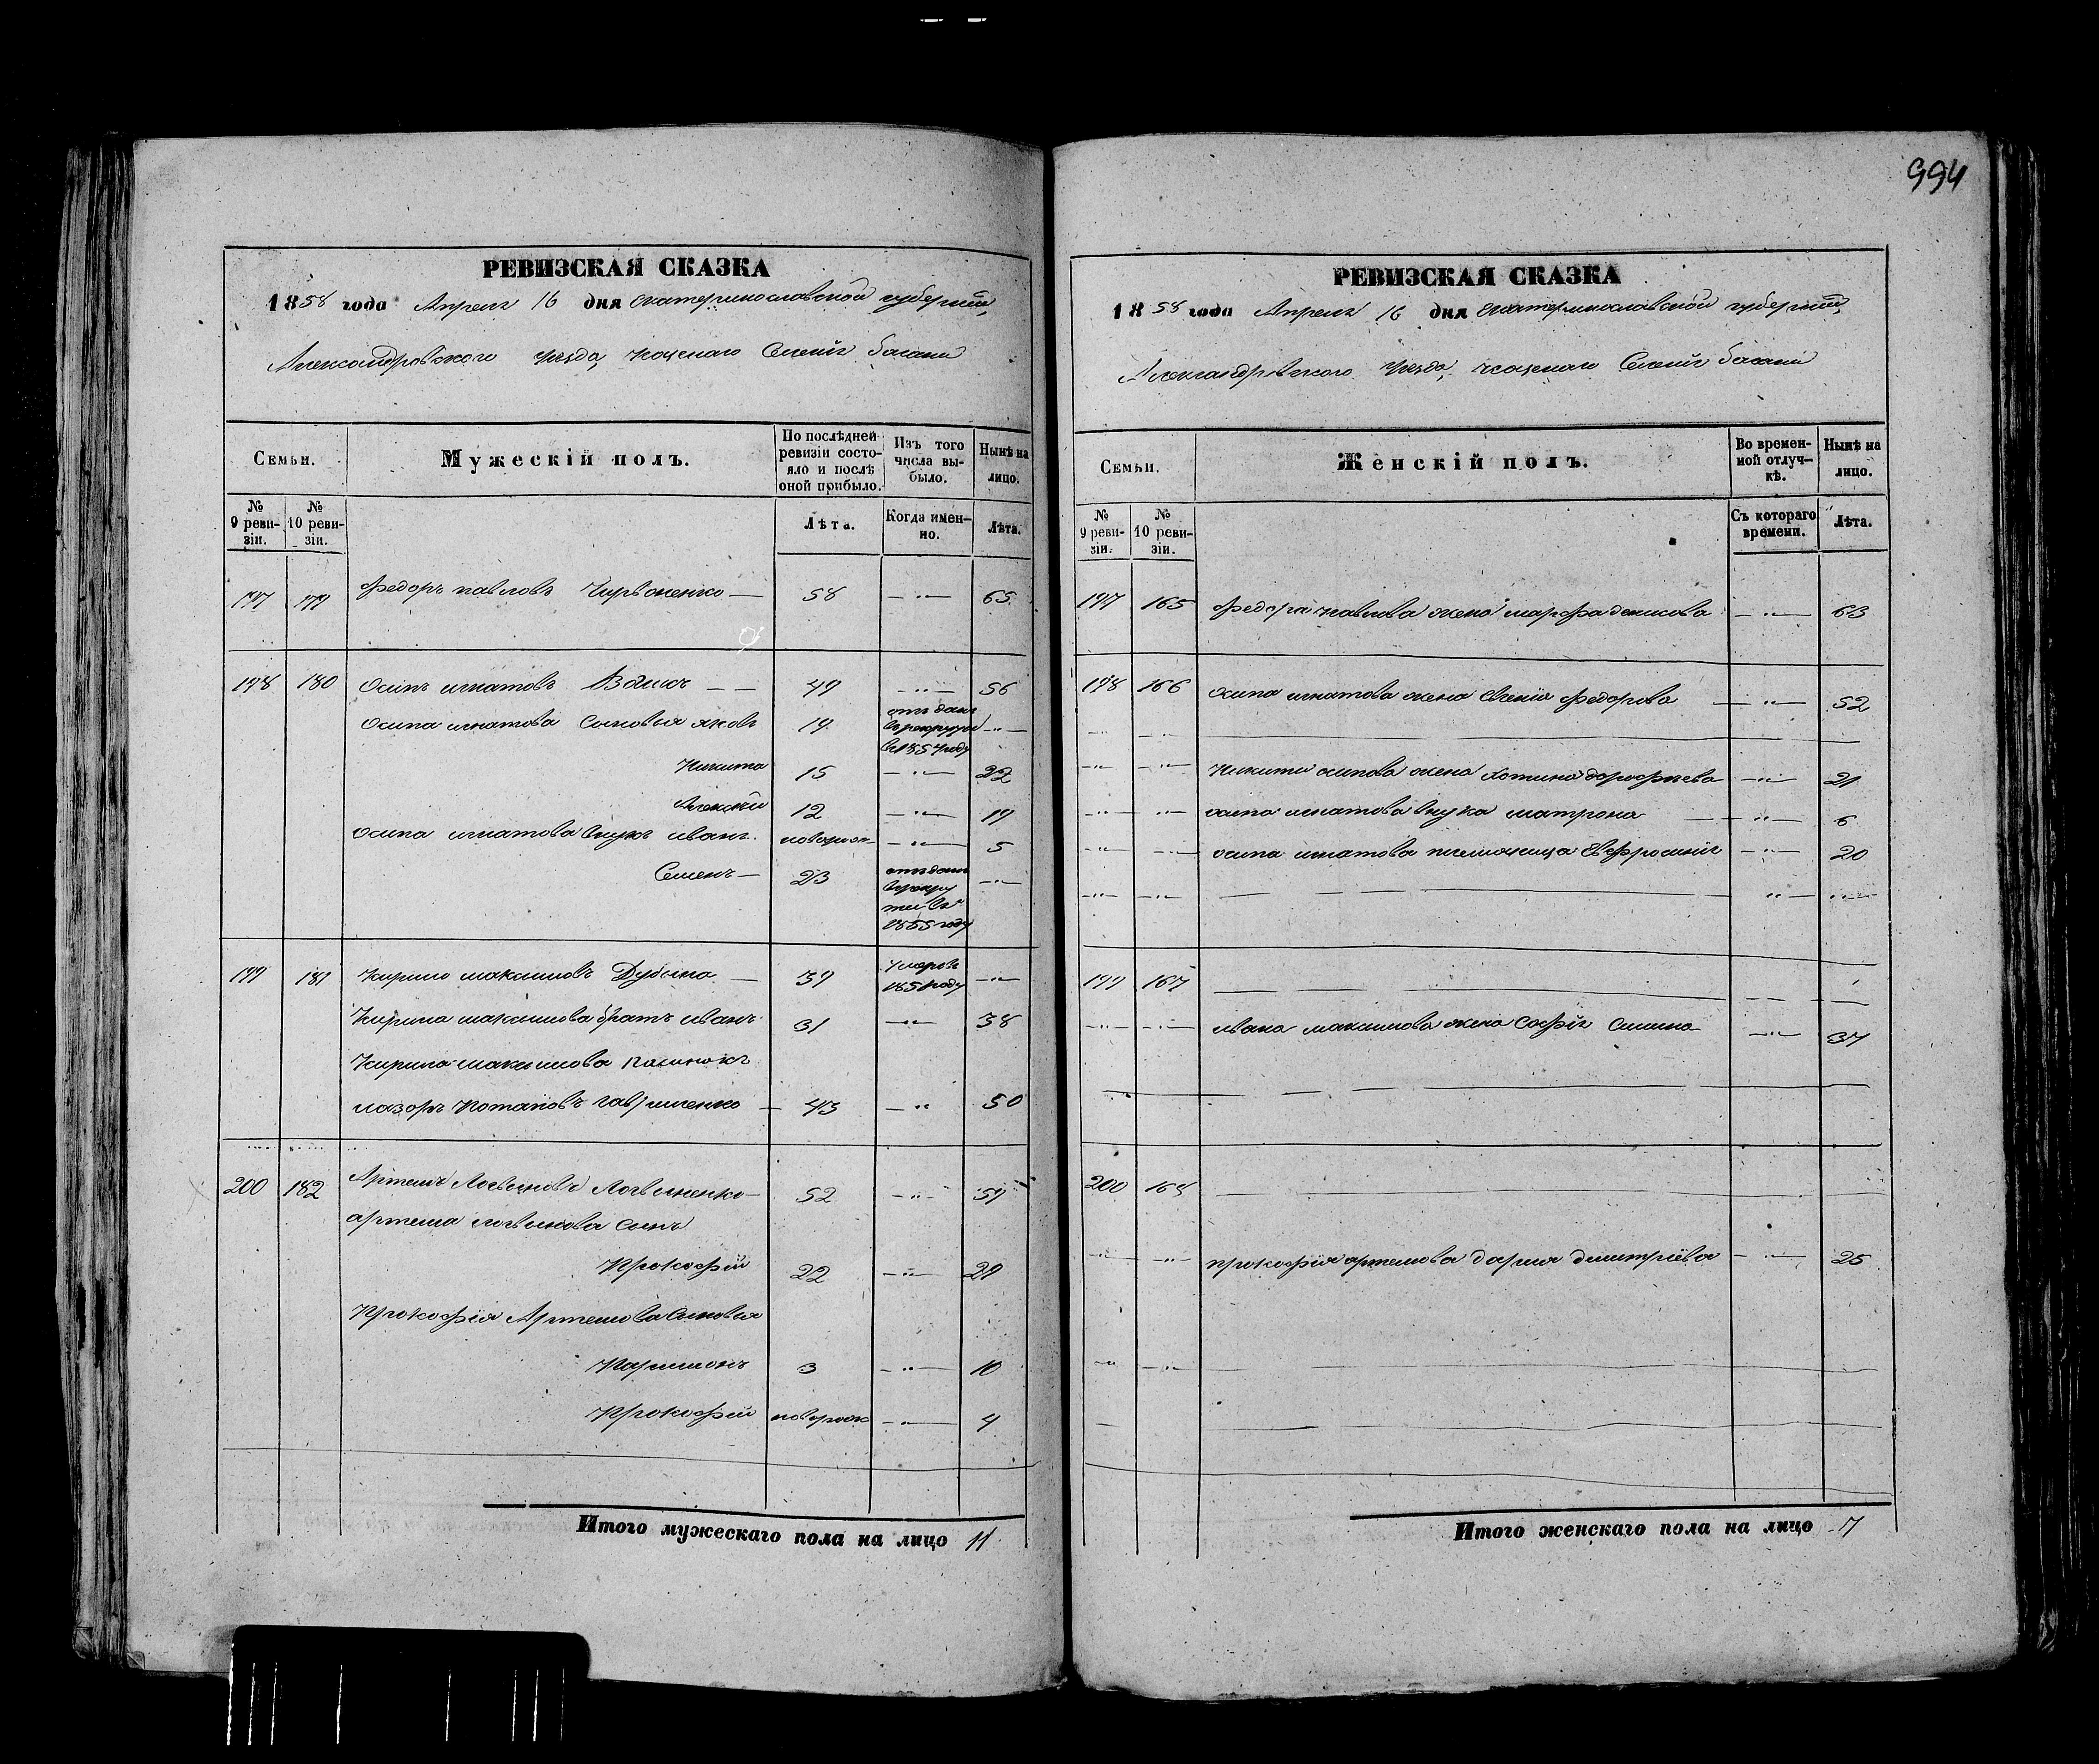 994
РЕВИЗСКАЯ СКАЗКА
1858 года Апреля 16 дня Екатеринославской губернии,
Александровского уезда, казенаго Селенія
Семьи.
Мужескій полъ.
По послѣдней ревизіи состояло и послѣ оной прибыло.
Изъ того числа выбыло.
Нынѣ на лицо.
№ 9 ревизіи.
№ 10 ревизіи.
Лѣта.
Когда именно.
Лѣта.
197 179 Федоръ павловъ Чирвоненко — 58 — " — 65
198 180 Осипъ игнатовъ — — 49 — " — 56
Осипа игнатова Сыновья яковъ 19 отъдани в рекруты в 1854 году — " —
Никита 15 — " — 22
Алексѣй 12 — " — 19
осипа игнатова внукъ иванъ новорож — " — 5
Семенъ — 23 отъдани в рекруты въ 1855 году — " —
199 181 Кирило максимовъ Дубина — 39 Умеръ 1851 году — " —
Кирила максимова братъ иванъ 31 — " — 38
Кирила максимова
лазоръ Потаповъ гавриленко — 43 — " 50
200 182 Артемъ Логвиновъ Логвиненко — 52 — " — 59
артема логвинова сынъ
Прокофій 22 — " — 29
Прокофія Артемова Сыновья
Паримонъ 3 — " — 10
Прокофій новорож — " — 4
Итого мужескаго пола на лицо 11
РЕВИЗСКАЯ СКАЗКА
1858 года Апреля 16 дня Екатеринославской губернии,
Александровского уезда, казенаго Селенія
Семьи.
Женскій полъ.
Во временной отлучкѣ.
Нынѣ на лицо.
№ 9 ревизіи.
№ 10 ревизіи.
Съ котораго времени.
Лѣта.
197 165 Федора павлова жена марфа денисова — " — 63
198 166 осипа игнатова жена Евгенія федорова — " — 52
Никити осипова жена дорофѣева — " — 21
осипа игнатова внука матрона — " — 6
осипа игнатова племяница Евфросинія — " — 20
199 167
ивана максимова жена Софія — " — 37
200 168
прокофія артемова дария димитріева — " — 25
Итого женскаго пола на лицо 7